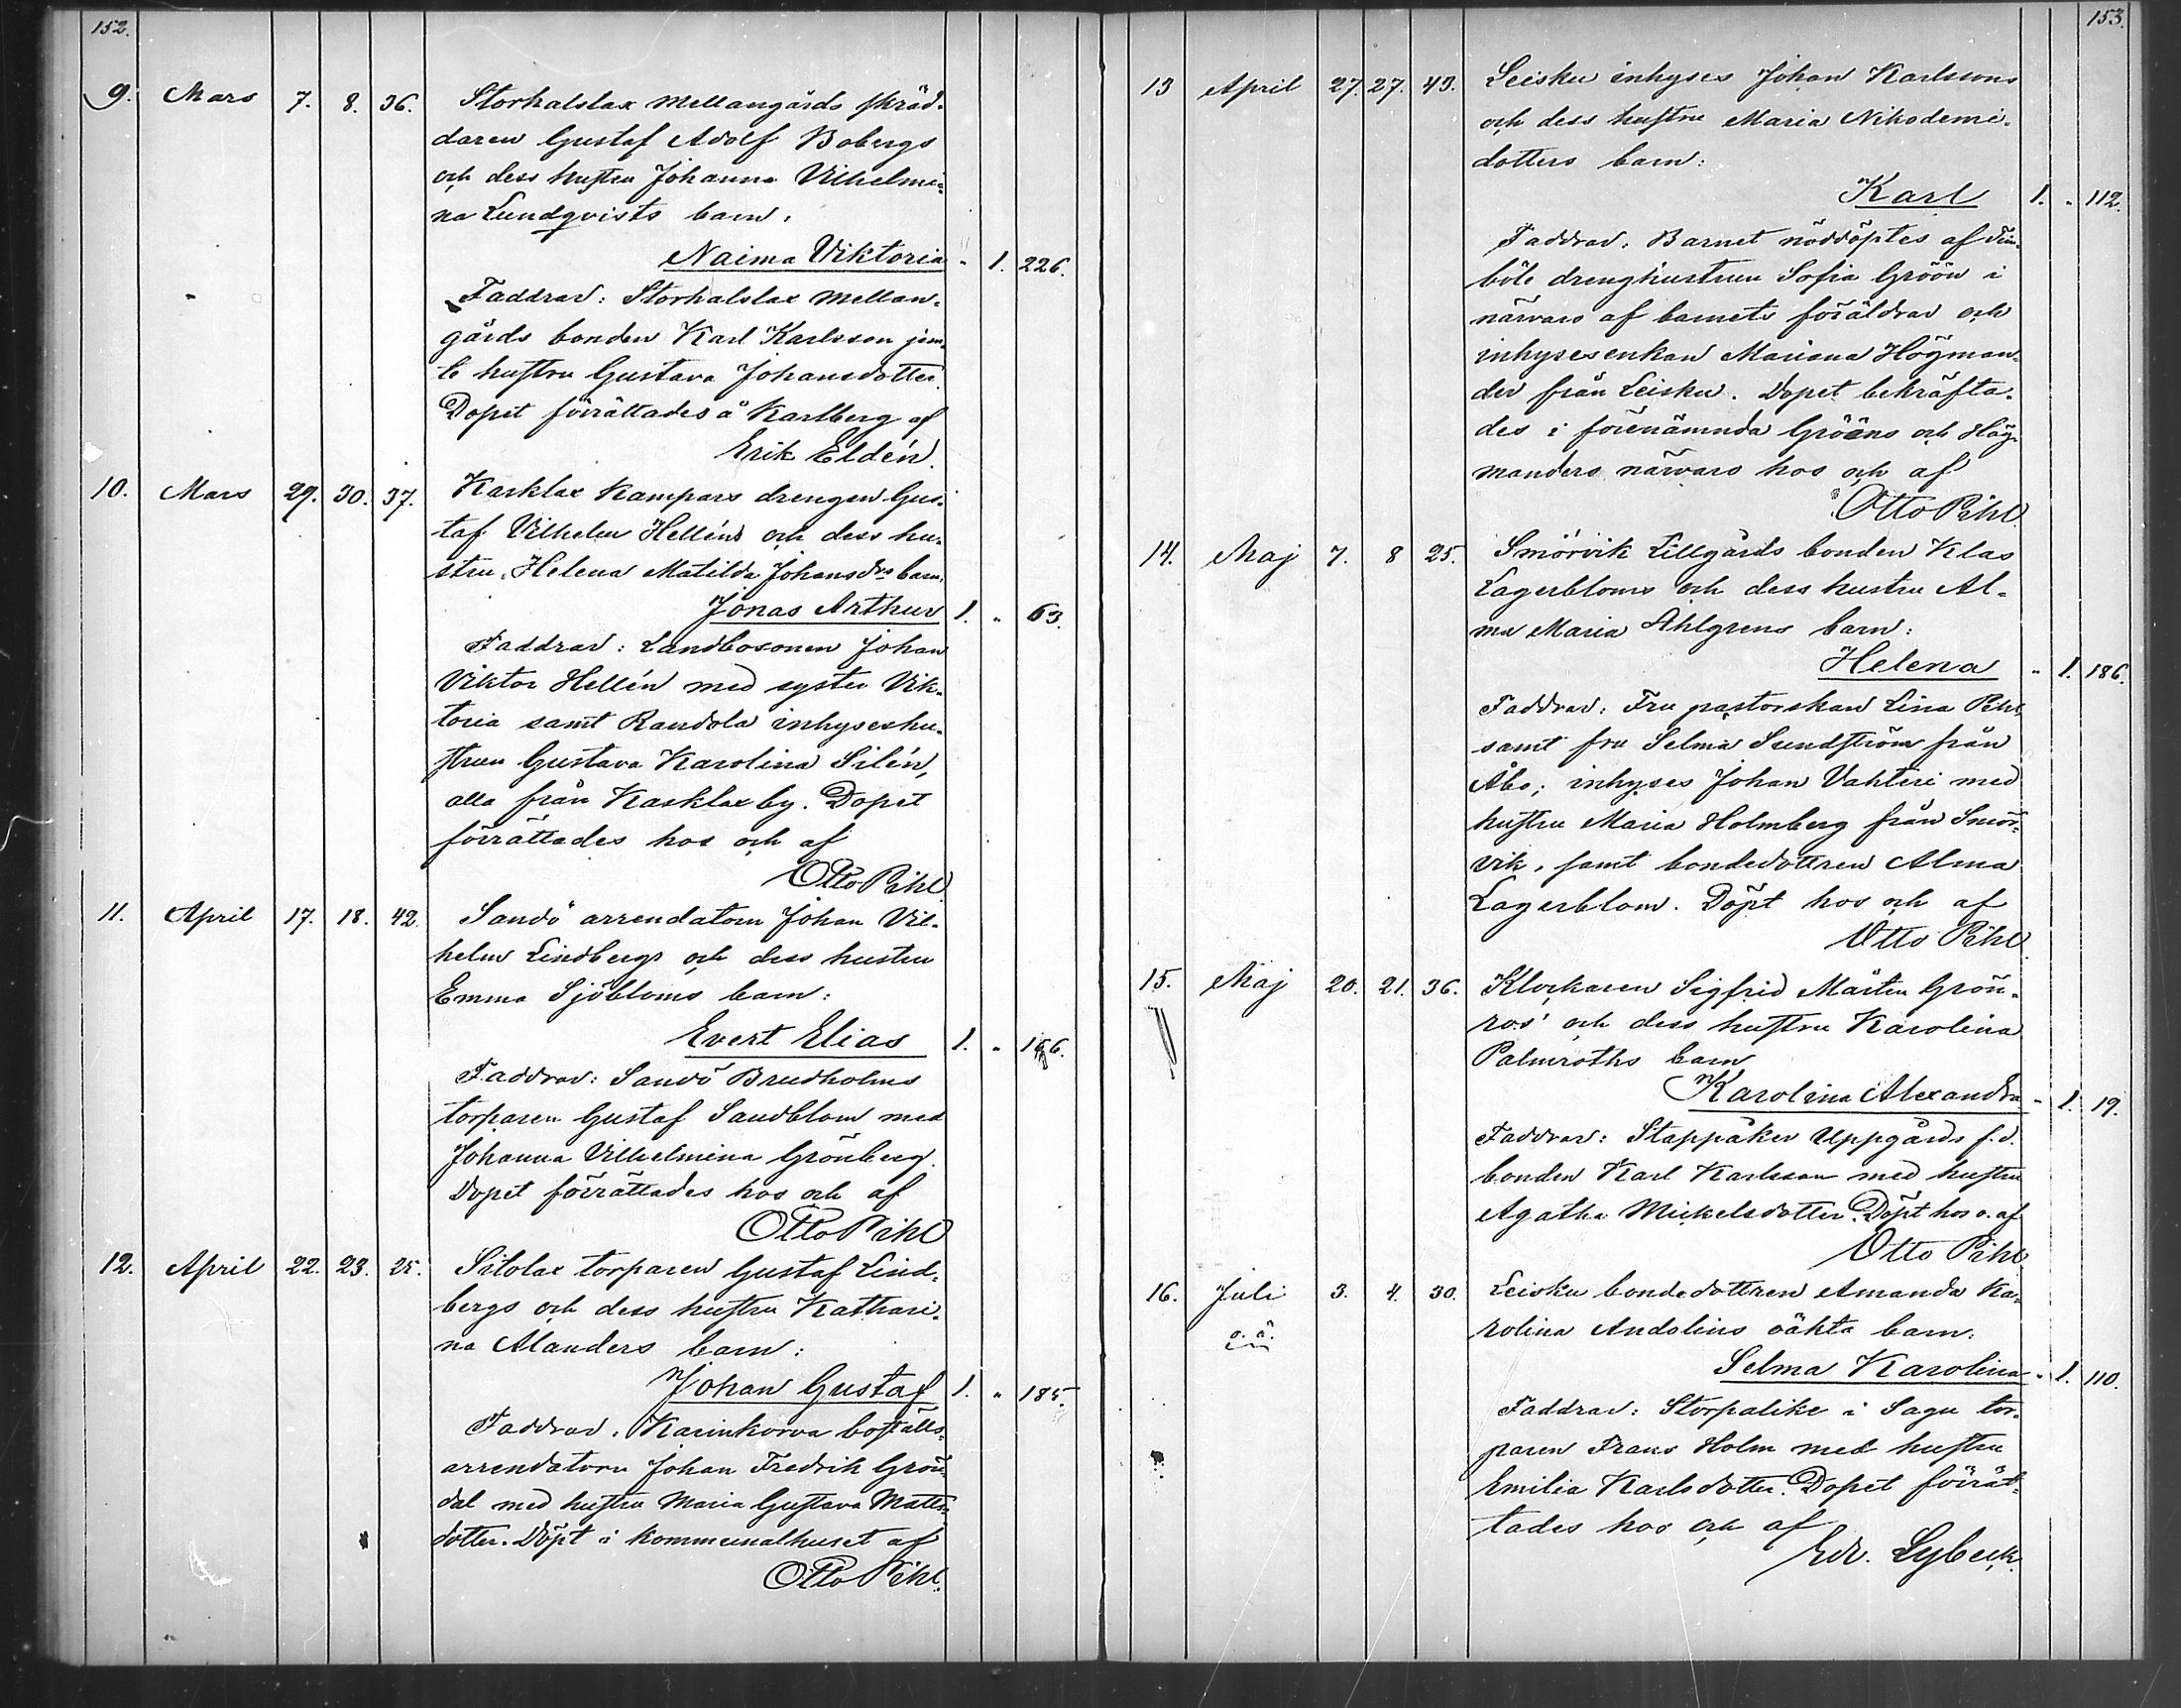 152.
9. Mars 7. 8. 36. Storhalslax Mellangårds skräd-
daren Gustaf Adolf Bobergs
och dess hustru Johanna Vilhelmi-
na Lundqvists barn:
Naima Viktoria " 1. 226.
Faddrar: Storhalslax Mellan-
gårds bonden Karl Karlsson jem-
te hustru Gustava Johansdotter.
Dopet förrättades å Karlberg af
Erik Eldén.
10. Mars 29. 30. 37. Karklax Kampars drengen Gus-
taf Vilhelm Helléns och dess hu-
stru Helena Matilda Johansdrs barn,
Jonas Arthur 1. " 63.
Faddrar: Landbosonen Johan
Viktor Hellén med syster Vik-
toria samt Randola inhyseshu-
strun Gustava Karolina Silén,
alla från Karklax by. Dopet
förrättades hos och af
Otto Pihl
11. April 17. 18. 42. Sandö arrendatorn Johan Vil-
helm Lindbergs och dess hustru
Emma Sjöbloms barn:
Evert Elias 1. " 166.
Faddrar: Sandö Bredholms
torparen Gustaf Sandblom med
Johanna Vilhelmina Grönberg.
Dopet förrättades hos och af
Otto Pihl
12. April 22. 23. 25. Silolax torparen Gustaf Lind-
bergs och dess hustru Kathari-
na Alanders barn:
Johan Gustaf 1. " 185.
Faddrar: Karinkorva boställs-
arrendatorn Johan Fredrik Grön-
dal med hustru Maria Gustava Matts-
dotter. Döpt i kommunalhuset af
Otto Pihl.
153.
13 April 27. 27. 43. Leisku inhyses Johan Karlssons
och dess hustru Maria Nikodemi-
dotters barn:
Karl 1. " 112.
Faddrar: Barnet nöddöptes af Fin-
böle drenghustrun Sofia Gröön i
närvaro af barnets föräldrar och
inhysesenkan Mariana Högman-
der från Leisku. Dopet bekräfta-
des i förenämnda Grööns och Hög-
manders närvaro hos och af
Otto Pihl
14. Maj 7. 8 25. Smörvik Lillgårds bonden Klas
Lagerbloms och dess hustru Al-
ma Maria Ahlgrens barn:
Helena " 1. 186.
Faddrar: Fru pastorskan Lina Pihl,
samt fru Selma Sundström från
Åbo; inhyses Johan Vahteri med
hustru Maria Holmberg från Smör-
vik, samt bondedottren Alma
Lagerblom. Döpt hos och af
Otto Pihl
15. Maj 20. 21. 36. Klockaren Sigfrid Mårten Grön-
roos' och dess hustru Karolina
Palmroths barn
Karolina Alexandra " 1. 19.
Faddrar: Stappåker Uppgårds f.d.
bonden Karl Karlsson med hustru
Agatha Mickelsdotter. Döpt hos o. af
Otto Pihl
16. Juli 3. 4. 30. Leisku bondedottren Amanda Ka-
o. ä. rolina Andolins oäkta barn:
Selma Karolina " 1. 110.
Faddrar: Storpalike i Sagu tor-
paren Frans Holm med hustru
Emilia Karlsdotter. Dopet förrät-
tades hos och af
Edv. Lybeck.